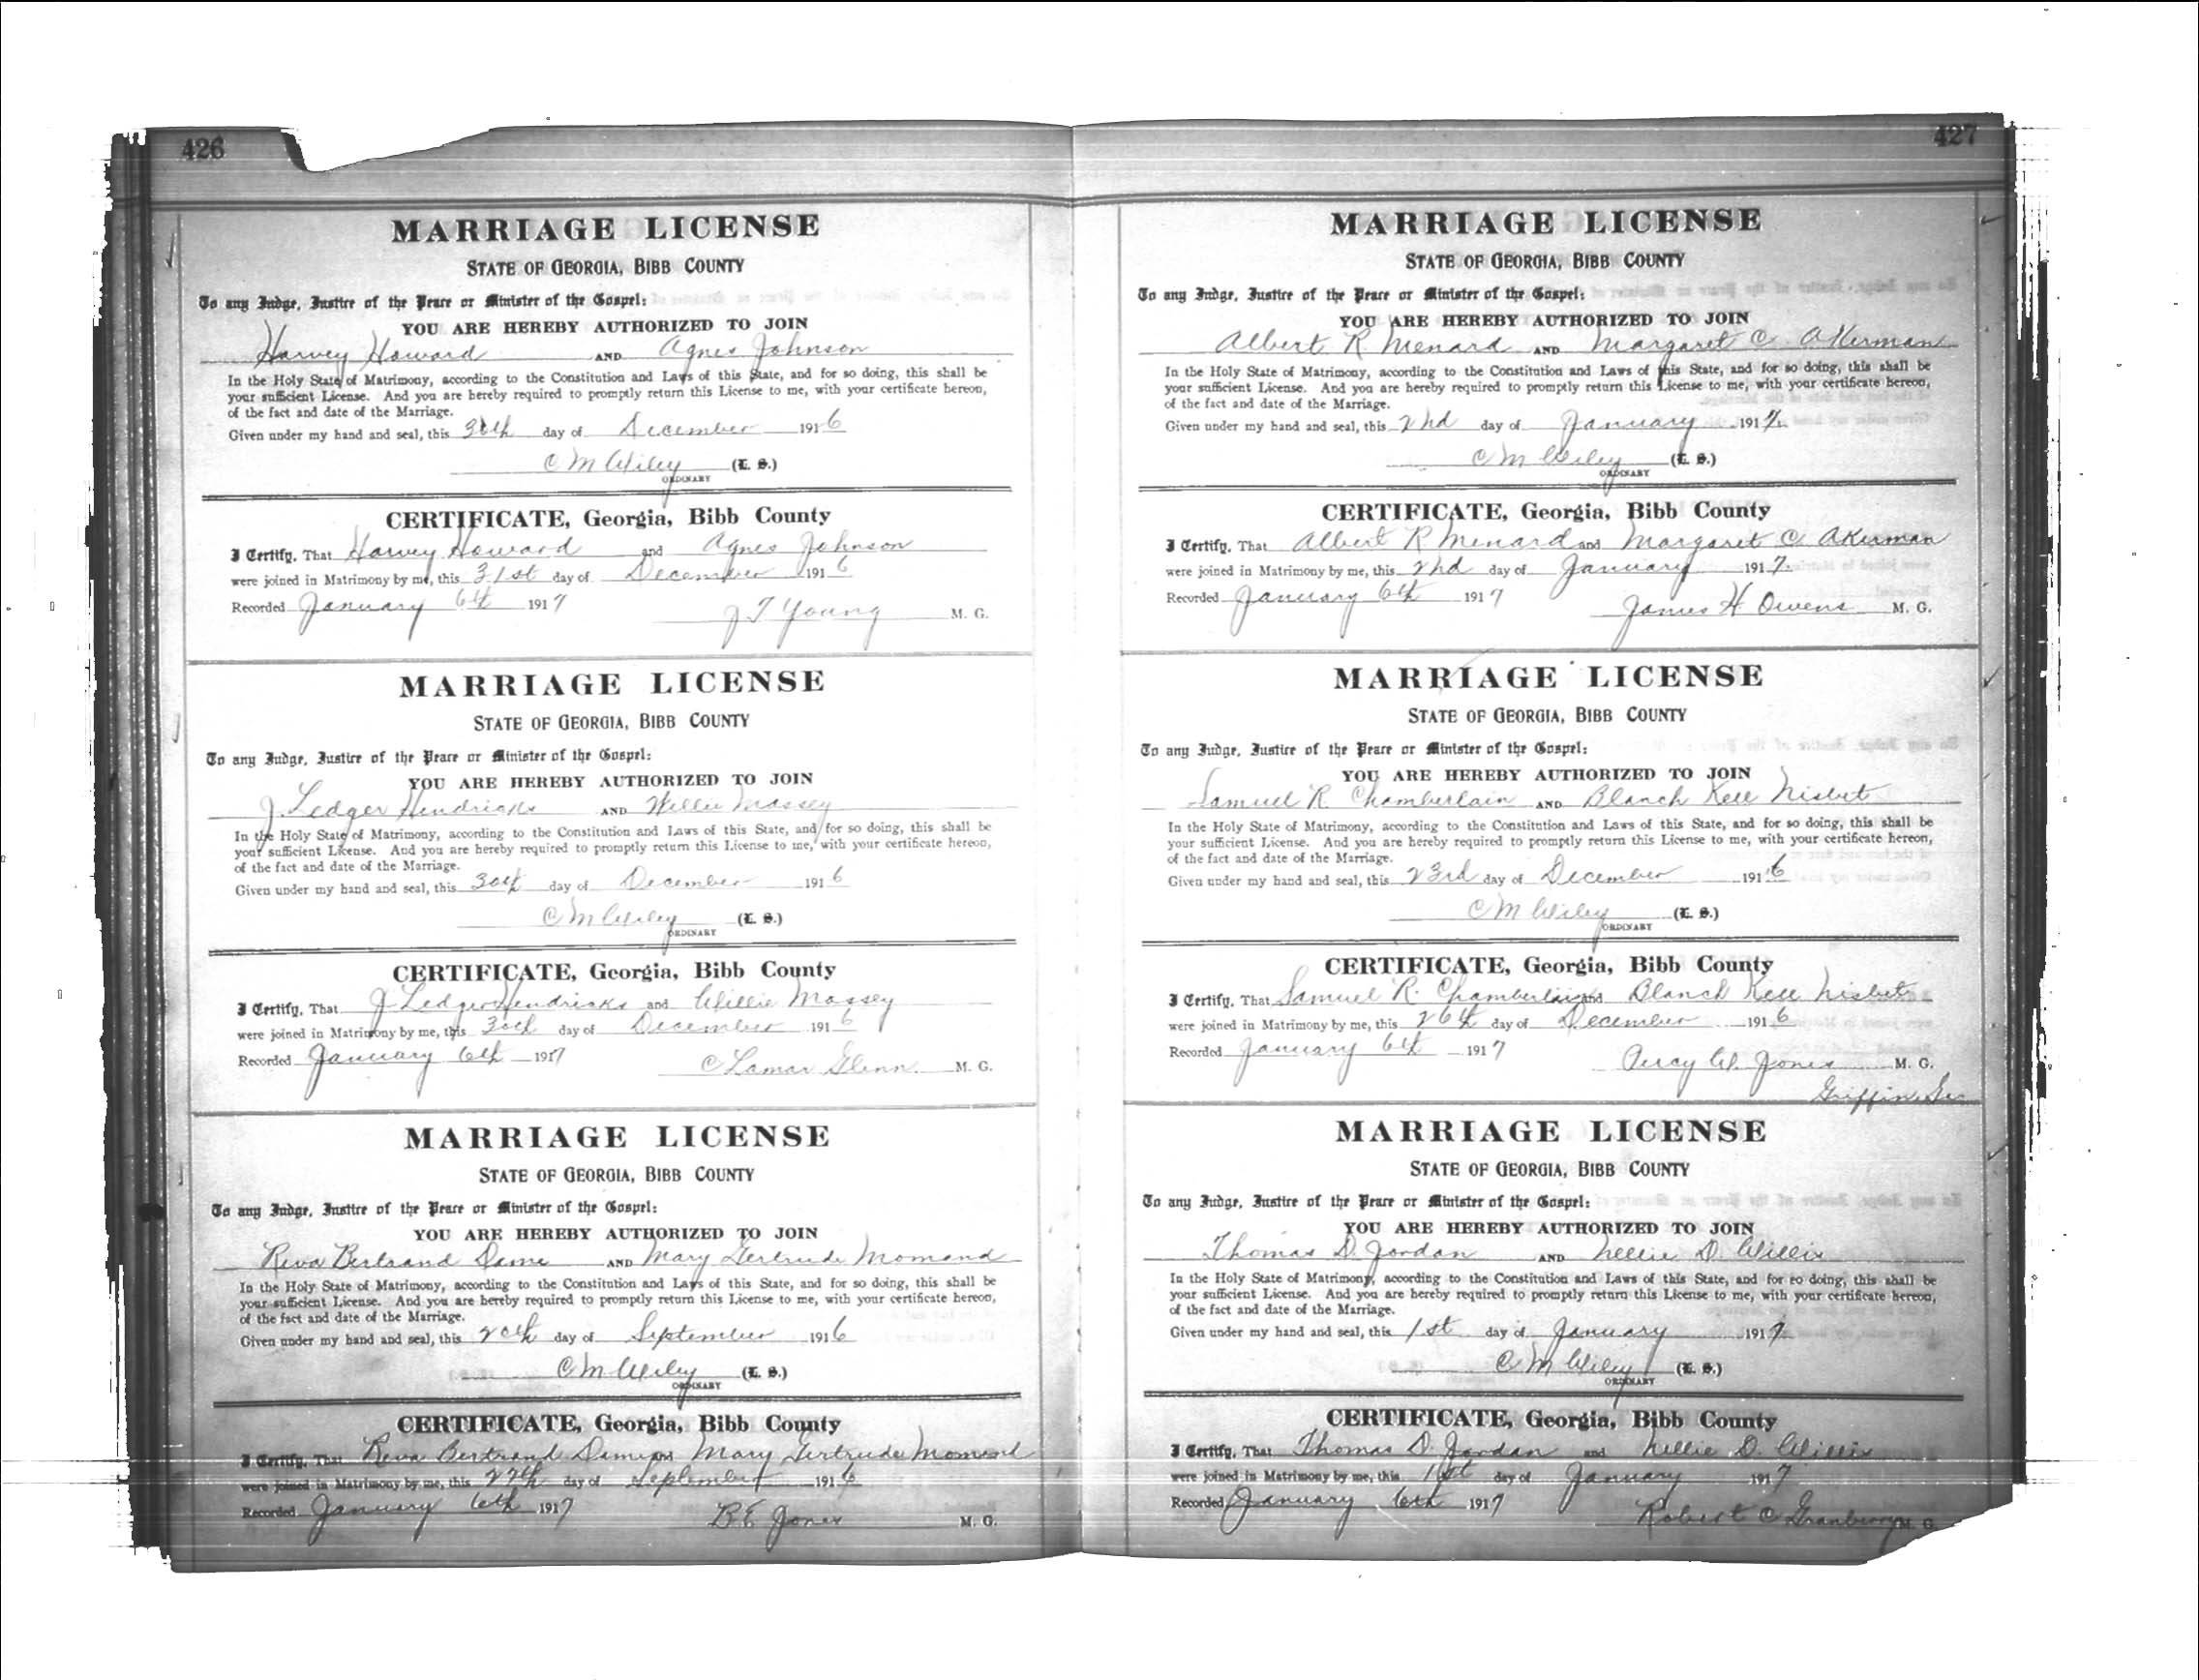 426
MARRIAGE LICENSE
STATE OF GEORGIA, BIBB COUNTY
To any Judge, Justice of the Peace or Minister of the Gospel:
YOU ARE HEREBY AUTHORIZED TO JOIN
Harvey Howard AND Agnes Johnson
In the Holy State of Matrimony, according to the Constitution and Laws of this State, and for so doing, this shall be
your sufficient License. And you are hereby required to promptly return this License to me, with your certificate hereon,
of the fact and date of the Marriage.
Given under my hand and seal, this 30th day of December 1916
C M Wiley (L. S.)
ORDINARY
CERTIFICATE, Georgia, Bibb County
I Certify, That Harvey Howard and Agnes Johnson
were joined in Matrimony by me, this 31st day of December 1916
Recorded January 6th 1917 J T Young M. G.
MARRIAGE LICENSE
STATE OF GEORGIA, BIBB COUNTY
To any Judge, Justice of the Peace or Minister of the Gospel:
YOU ARE HEREBY AUTHORIZED TO JOIN
J Ledger Hendricks AND Willie Massey
In the Holy State of Matrimony, according to the Constitution and Laws of this State, and for so doing, this shall be
your sufficient License. And you are hereby required to promptly return this License to me, with your certificate hereon,
of the fact and date of the Marriage.
Given under my hand and seal, this 30th day of December 1916
C M Wiley (L. S.)
ORDINARY
CERTIFICATE, Georgia, Bibb County
I Certify, That J Ledger Hendricks and Willie Massey
were joined in Matrimony by me, this 30th day of December 1916
Recorded January 6th 1917 C Lamar Glenn M. G.
MARRIAGE LICENSE
STATE OF GEORGIA, BIBB COUNTY
To any Judge, Justice of the Peace or Minister of the Gospel:
YOU ARE HEREBY AUTHORIZED TO JOIN
Reva Bertrand Dame AND Mary Gertrude Momand
In the Holy State of Matrimony, according to the Constitution and Laws of this State, and for so doing, this shall be
your sufficient License. And you are hereby required to promptly return this License to me, with your certificate hereon,
of the fact and date of the Marriage.
Given under my hand and seal, this 20th day of September 1916
C M Wiley (L. S.)
ORDINARY
CERTIFICATE, Georgia, Bibb County
I Certify, That Reva Bertrand Dame and Mary Gertrude Momand
were joined in Matrimony by me, this 27th day of September 1916
Recorded January 6th 1917 B E Jones M. G.
427
MARRIAGE LICENSE
STATE OF GEORGIA, BIBB COUNTY
To any Judge, Justice of the Peace or Minister of the Gospel:
YOU ARE HEREBY AUTHORIZED TO JOIN
Albert R Menard AND Margaret C Akerman
In the Holy State of Matrimony, according to the Constitution and Laws of this State, and for so doing, this shall be
your sufficient License. And you are hereby required to promptly return this License to me, with your certificate hereon,
of the fact and date of the Marriage.
Given under my hand and seal, this 2nd day of January 1917.
C M Wiley (L. S.)
ORDINARY
CERTIFICATE, Georgia, Bibb County
I Certify, That Albert R Menard and Margaret C Akerman
were joined in Matrimony by me, this 2nd day of January 1917.
Recorded January 6th 1917 James H Owens M. G.
MARRIAGE LICENSE
STATE OF GEORGIA, BIBB COUNTY
To any Judge, Justice of the Peace or Minister of the Gospel:
YOU ARE HEREBY AUTHORIZED TO JOIN
Samuel R Chamberlain AND Blanch Kell Nisbet
In the Holy State of Matrimony, according to the Constitution and Laws of this State, and for so doing, this shall be
your sufficient License. And you are hereby required to promptly return this License to me, with your certificate hereon,
of the fact and date of the Marriage.
Given under my hand and seal, this 23rd day of December 1916
C M Wiley (L. S.)
ORDINARY
CERTIFICATE, Georgia, Bibb County
I Certify, That Samuel R. Chamberlain and Blanch Kell Nisbet
were joined in Matrimony by me, this 26th day of December 1916
Recorded January 6th 1917 Percy W. Jones M. G.
Griffin Ga
MARRIAGE LICENSE
STATE OF GEORGIA, BIBB COUNTY
To any Judge, Justice of the Peace or Minister of the Gospel:
YOU ARE HEREBY AUTHORIZED TO JOIN
Thomas D. Jordan AND Nellie D. Willis
In the Holy State of Matrimony, according to the Constitution and Laws of this State, and for so doing, this shall be
your sufficient License. And you are hereby required to promptly return this License to me, with your certificate hereon,
of the fact and date of the Marriage.
Given under my hand and seal, this 1st day of January 1917
C M Wiley (L. S.)
ORDINARY
CERTIFICATE, Georgia, Bibb County
I Certify, That Thomas D. Jordan and Nellie D. Willis
were joined in Matrimony by me, this 1st day of January 1917
Recorded January 6th 1917 Robert C Granberry M. G.